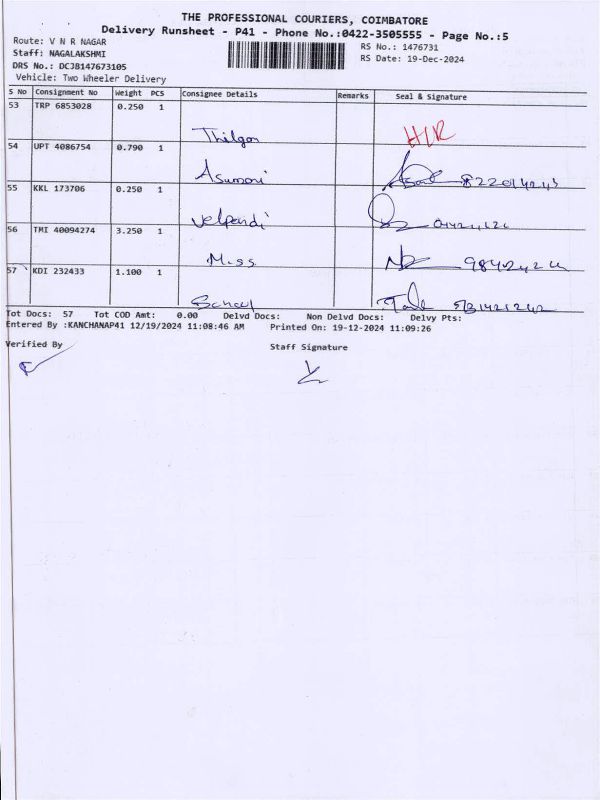 THE PROFESSIONAL COURIERS, COIMBATORE
Delivery Runsheet - P41 - Phone No.:0422-3505555 - Page No.:5
Route: V N R NAGAR
RS No.: 1476731
Staff: NAGALAKSHMI
RS Date: 19-Dec-2024
DRS No.: DCJB147673105
Vehicle: Two Wheeler Delivery
S No Consignment No Weight PCS Consignee Details Remarks Seal & Signature
53 TRP 6853028 0.250 1
Thilgon H/R
54 UPT 4086754 0.790 1
Asumoni
55 KKL 173706 0.250 1
Velpandi
56 TMI 40094274 3.250 1
Miss
57 KDI 232433 1.100 1
Tot Docs: 57 Tot COD Amt: 0.00 Delvd Docs: Non Delvd Docs: Delvy Pts:
Entered By :KANCHANAP41 12/19/2024 11:08:46 AM Printed On: 19-12-2024 11:09:26
Verified By
Staff Signature